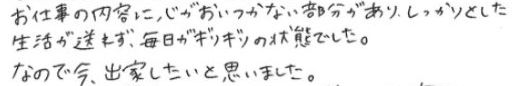 お仕事の内容に心がおいつかない部分があり、しっかりとした
生活が送れず、毎日がギリギリの状態でした。
なので今、出家したいと思いました。